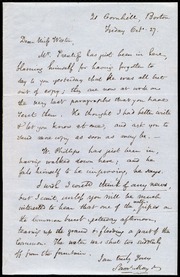 21 Cornhill, Boston
Friday Oct. 27.
Dear Miss Weston,
Mr. Prentiss has just been in here,
blaming himself for having forgotten to
say to you yesterday that he was all out
of copy; they are now at work on
the very last paragraphs that you have
sent them. He thought I had better write
& let you know at once, and ask you to
send some copy as soon as may be.
Mr. Phillips has just been in,
having walked down here; and he
feels himself to be improving, he says.
I wish I could think of any news,
but I can't, unless you will be much
interested to hear that one of the pipes on
the Common burst yesterday afternoon,
tearing up the ground & flooding a part of the
Common. The water was shut off
from the fountain.
I am truly yours
Sam'l May Jr.